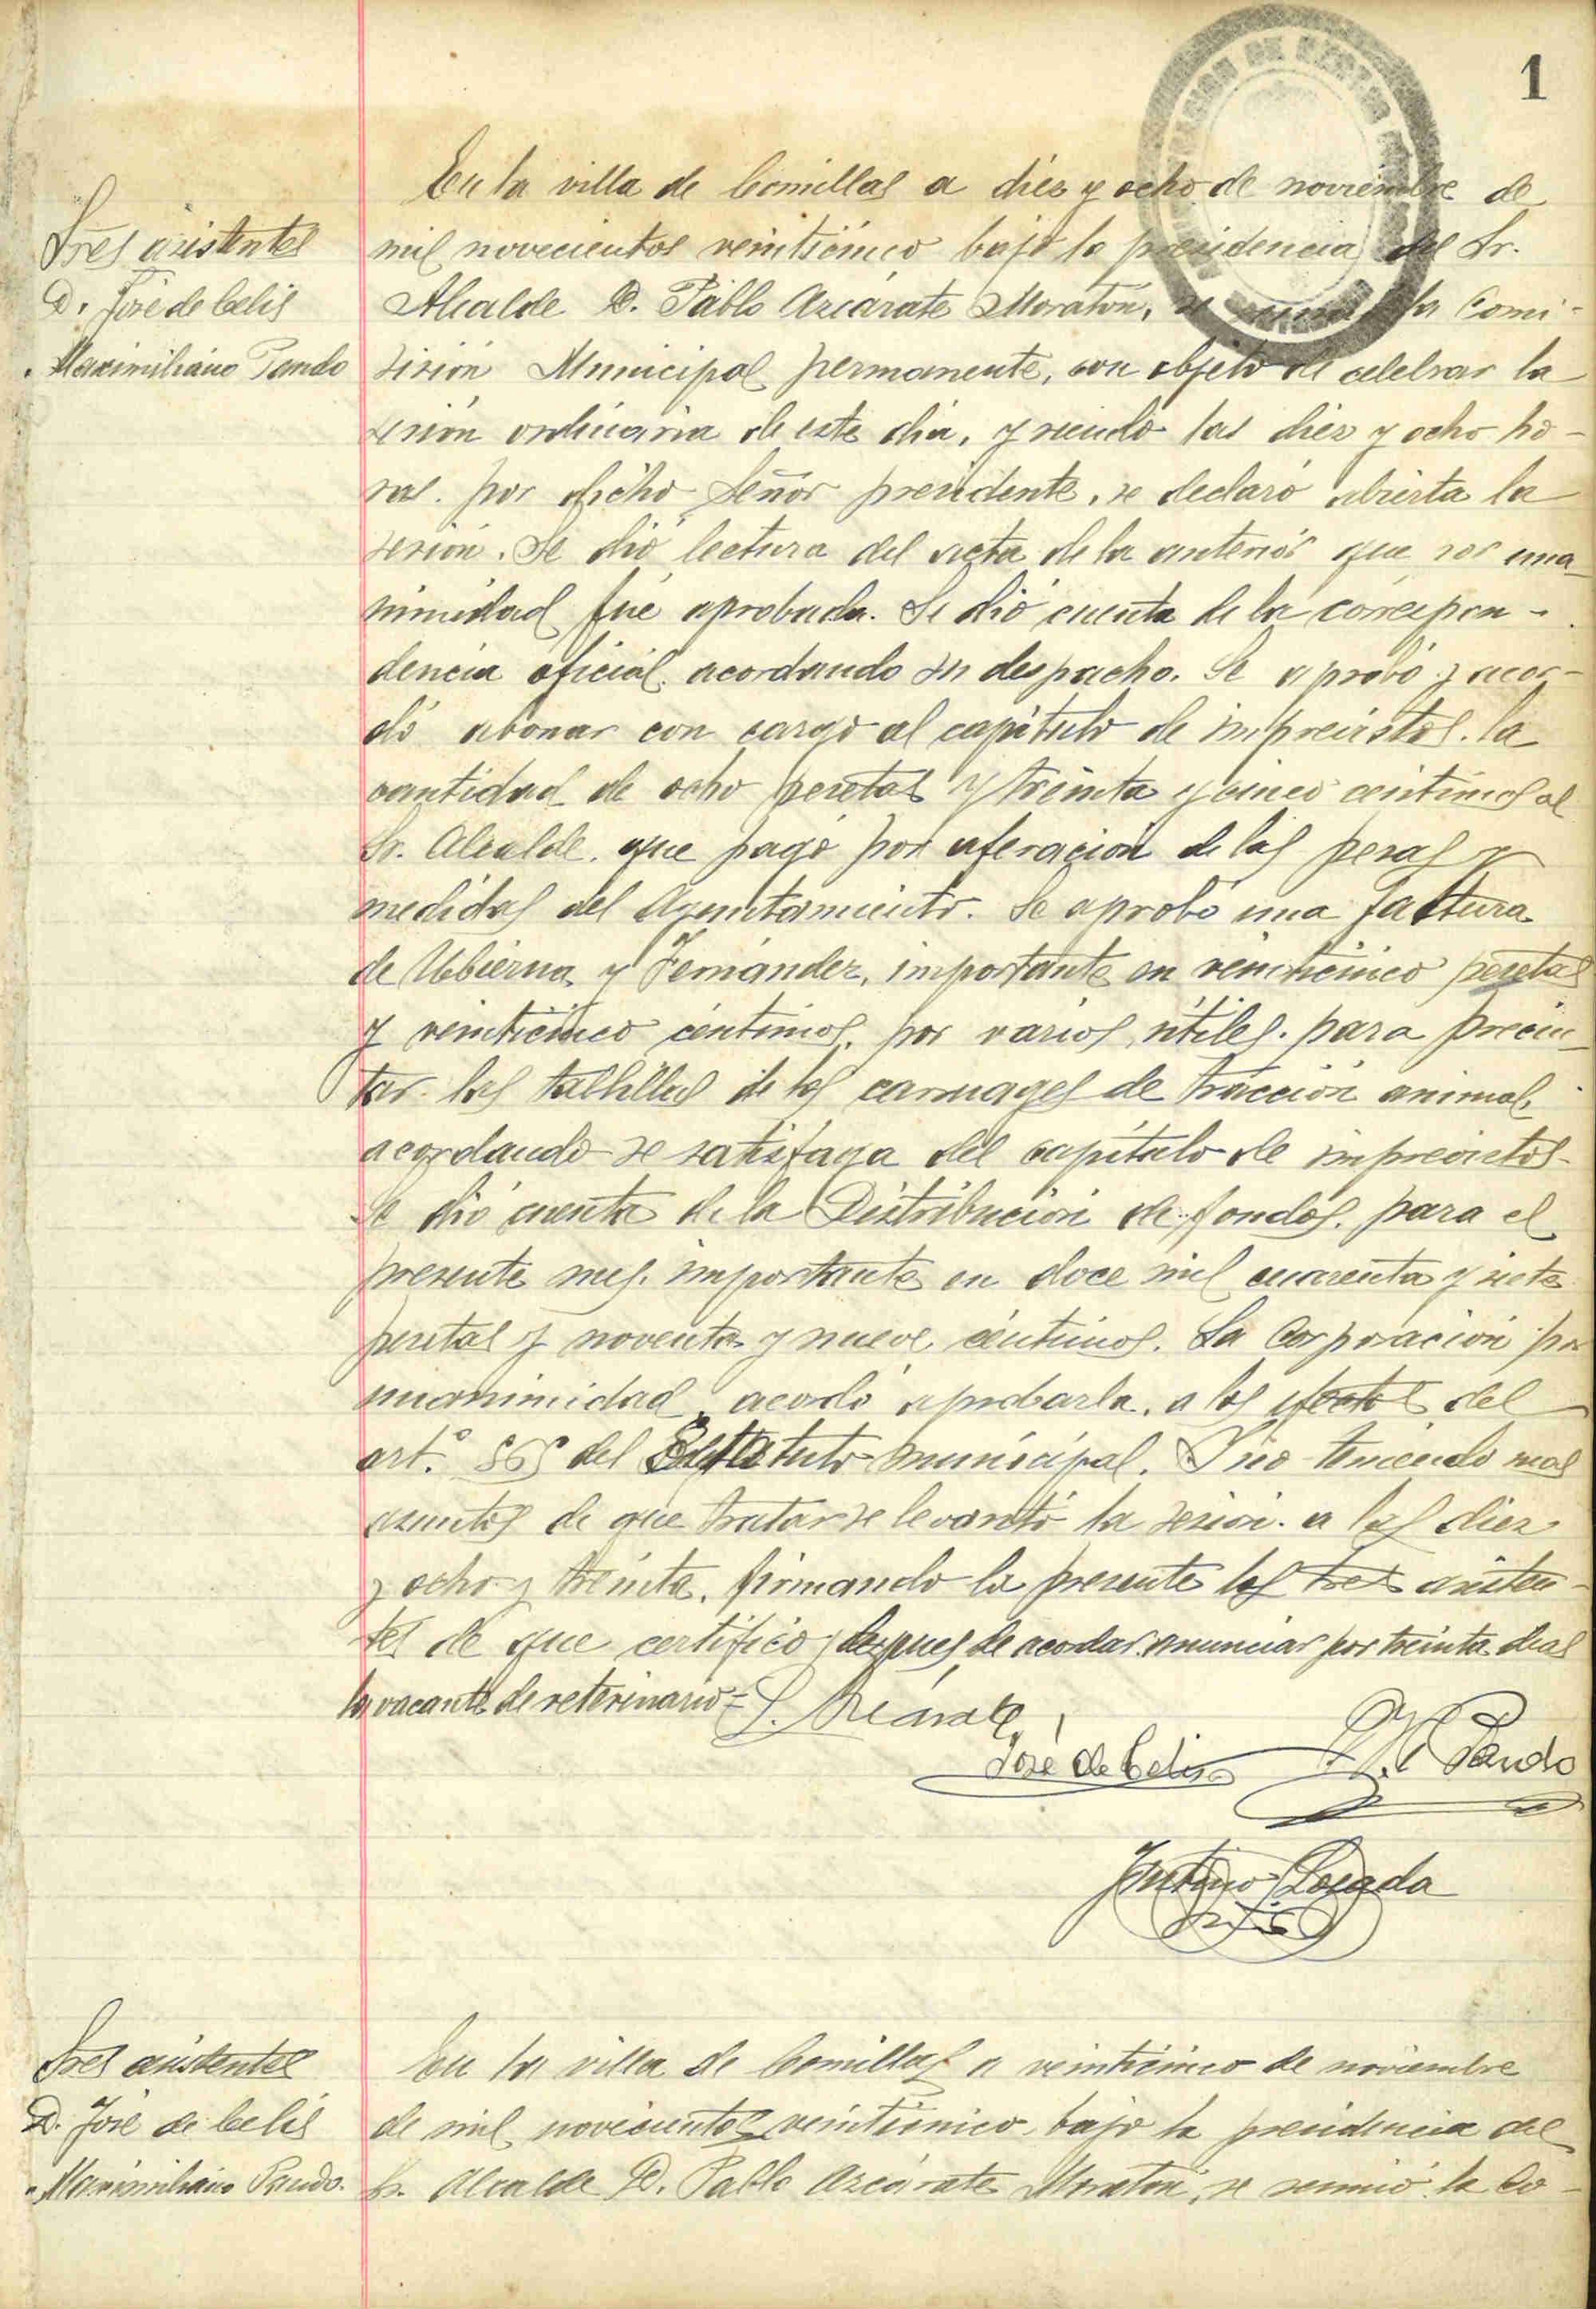 1
En la villa de Comillas a diez y ocho de noviembre de
Sres asistentes
mil novecientos veinticinco bajo la presidencia del Sr.
D. José de Celis
Alcalde D. Pablo Azcárate Moratón, se la Comi-
" Maximiliano Pando
sición Municipal permanente, con objeto de celebrar la
sesión ordinaria de este dia, y siendo las diez y ocho ho-
ras. por dicho Señor presidente, se declaró abierta la
sesión. Se dió lectura del acta de la anterior que por una
nimidad fué aprobada. Se dió cuenta de la correspon-
dencia oficial, acordando su despacho. Se aprobó y acor-
dó abonar con cargo al capítulo de imprevistos. la
cantidad de ocho pesetas y treinta y cinco céntimos al
Sr. Alcalde. que pagó por aferación de las pesas y
medidas del Ayuntamiento. Se aprobó una factura
de Ubierna y Fernández, importante en veinticinco pesetas
y veinticinco céntimos, por varios útiles. para precin-
tar las tablillas de los carruages de tracción animal,
acordando se satisfaga del capítulo de imprevistos.
Se dió cuenta de la Distribución de fondos. para el
presente mes. importante en doce mil cuarenta y siete
pesetas y noventa y nueve céntimos. La Corporación por
unanimidad, acordó aprobarla, a los efectos del
art.º del Estatuto municipal. Y no teniendo mas
asuntos de que tratar se levantó la sesión. a las diez
y ocho y treinta, firmando la presente los tres asisten-
tes de que certifico, despues de acordar anunciar por treinta dias
la vacante de veterinario =
P. Azcárate
José de Celis
M. Pando
Losada
Sres asistentes
En la villa de Comillas a veinticinco de noviembre
D. José de Celis
de mil novecientos veinticinco, bajo la presidencia del
" Maximiliano Pando.
Sr. Alcalde D. Pablo Azcárate Moratón, se reunió la Co-